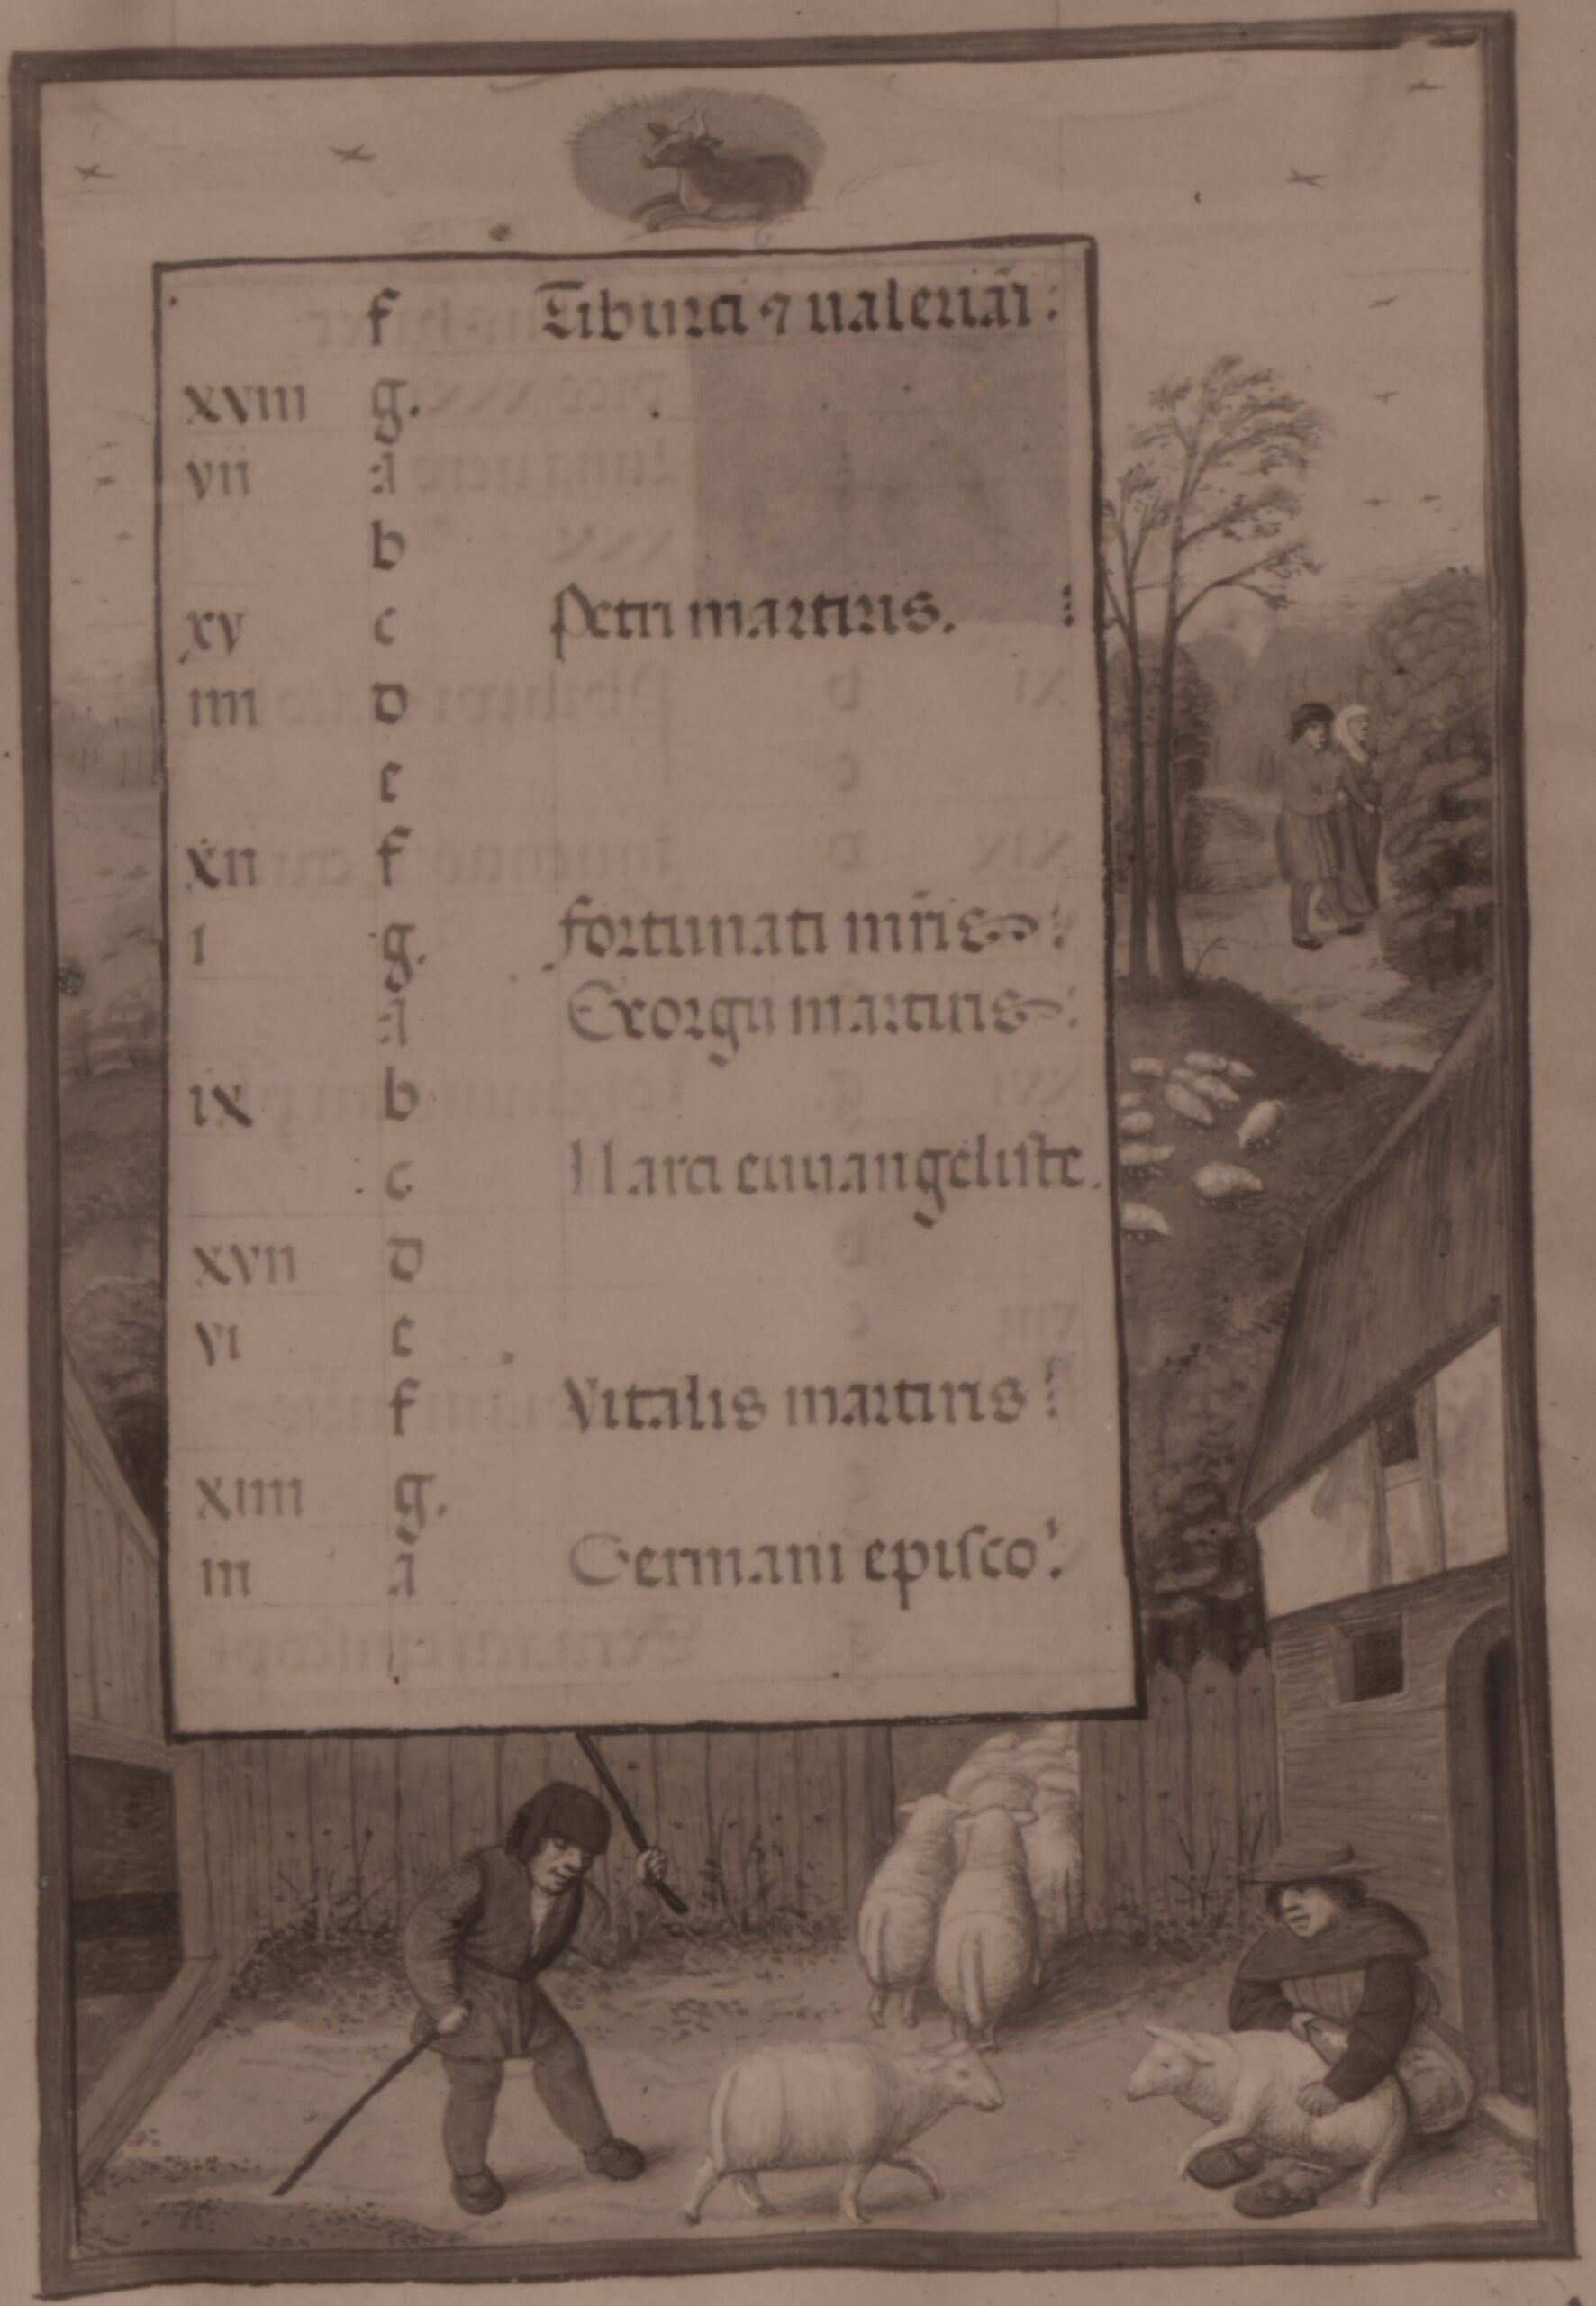 f Tiburci ⁊ ualeriāi :
xviii g.
vii a
b
xv c Petri martiris. :
iiii d
e
xii f
i g. fortunati mr̄is :
a Georgii martiris :
ix b
c Marci euuangeliste.
xvii d
vi e
f Vitalis martiris :
xiiii g.
iii a Germani episco :